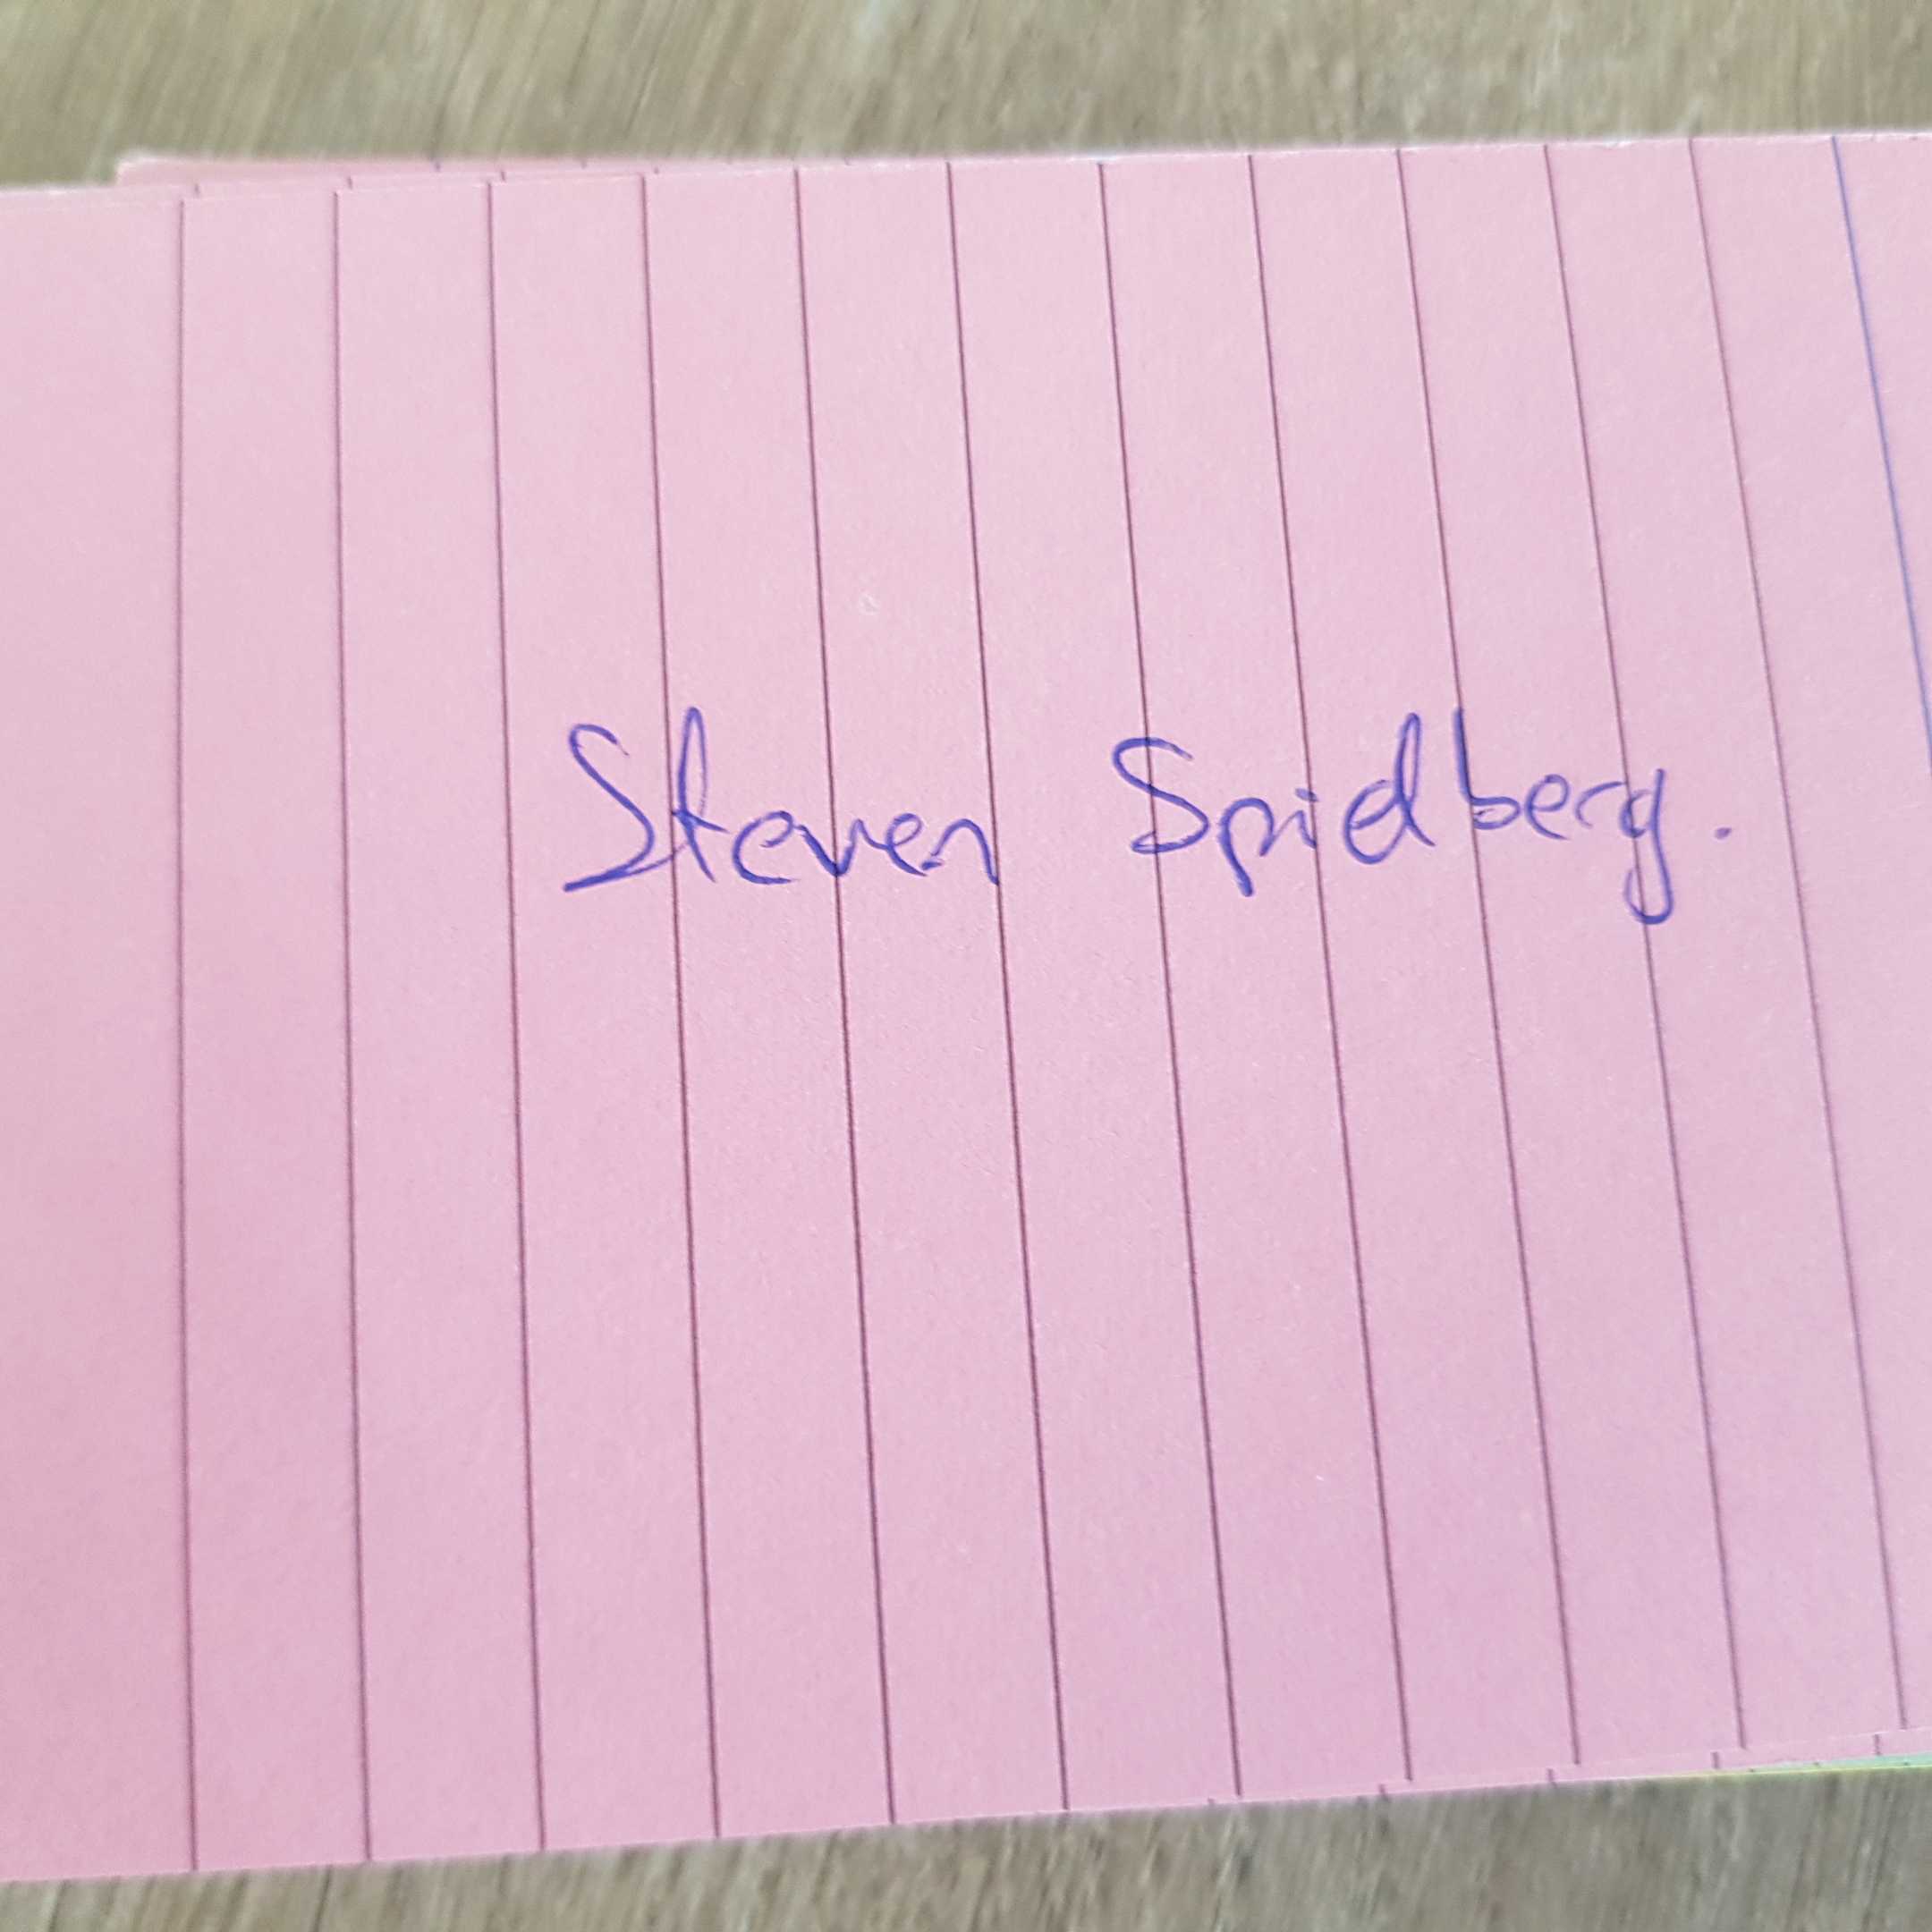 Steven Spielberg.